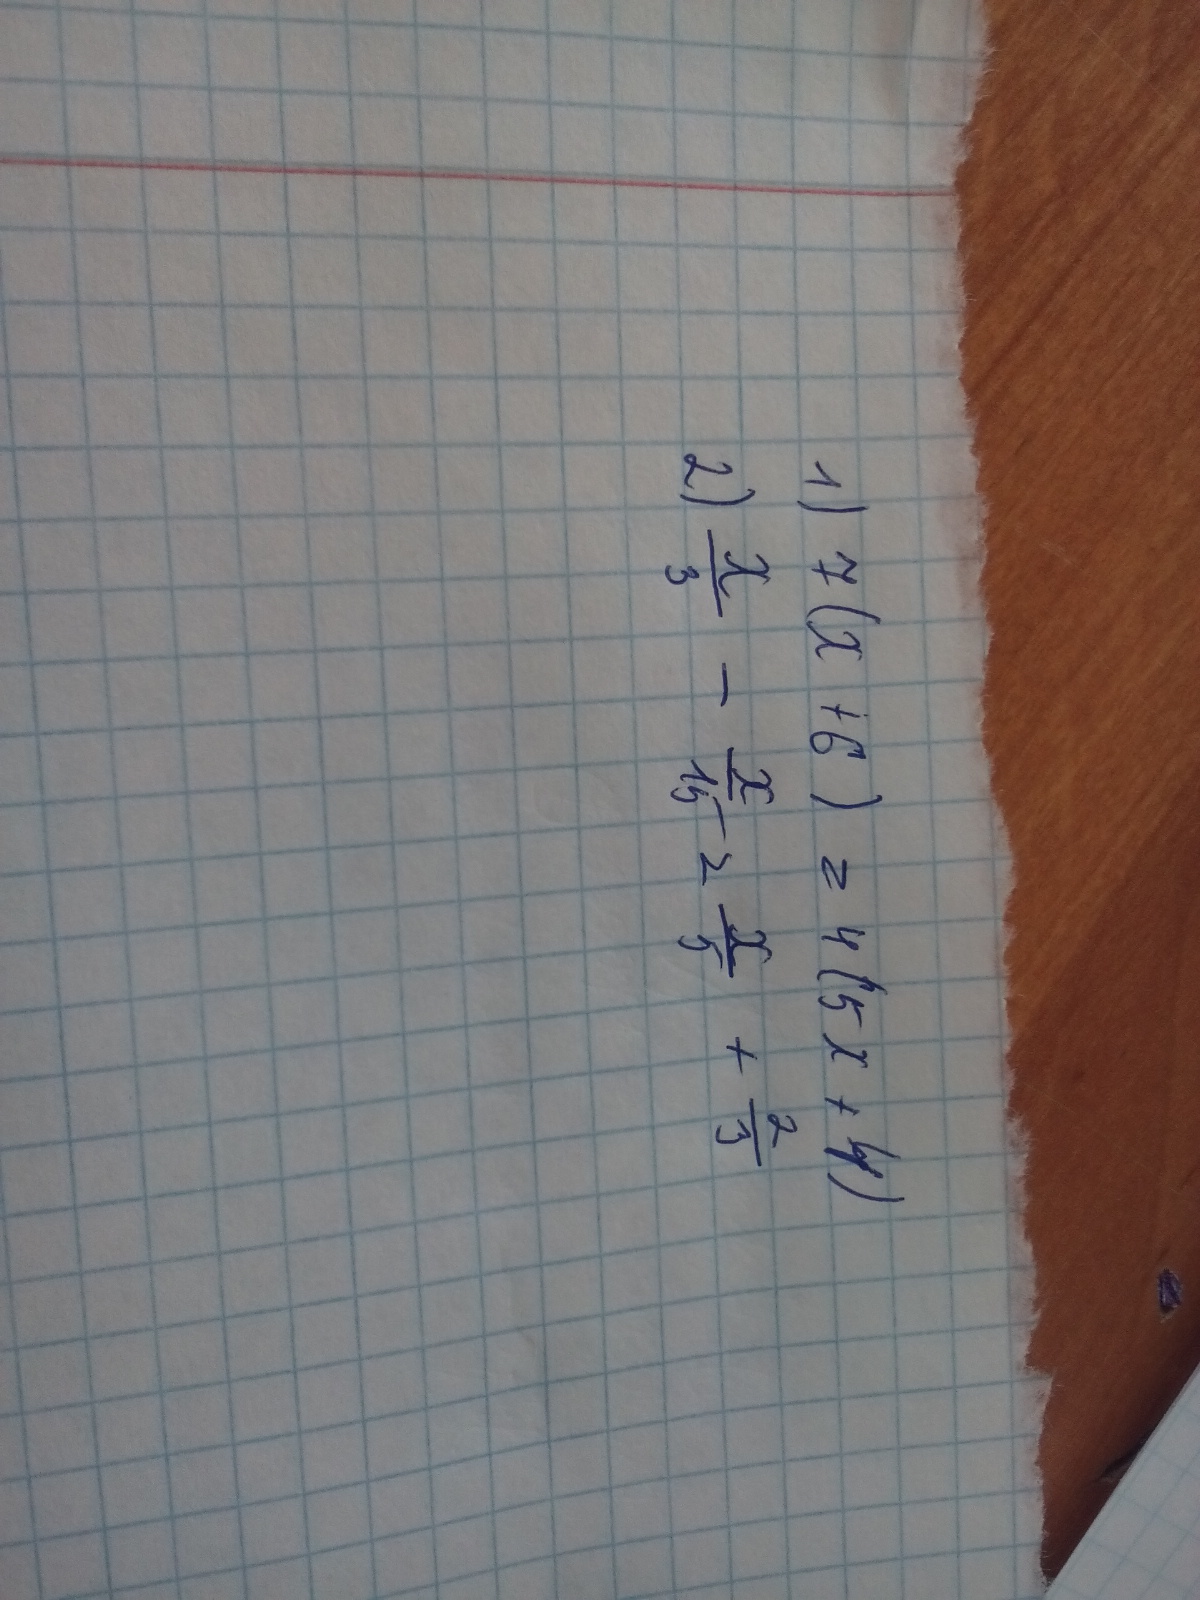 1) 7(x+6) = 4(5x+4)
2) x/3 - x/15 = x/5 + 2/3